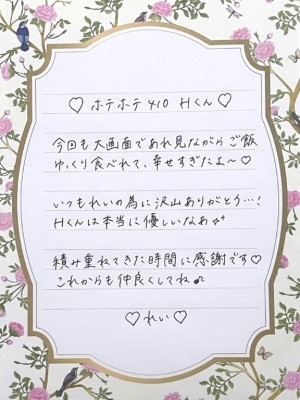 ♡ ホテホテ 410 Hくん ♡
今回も大画面であれ見ながらご飯
ゆっくり食べれて、幸せすぎたよ〜♡
いつもれいの為に沢山ありがとう…!
Hくんは本当に優しいなぁ✧₊
積み重ねてきた時間に感謝です♡
これからも仲良くしてね♪
♡れい♡